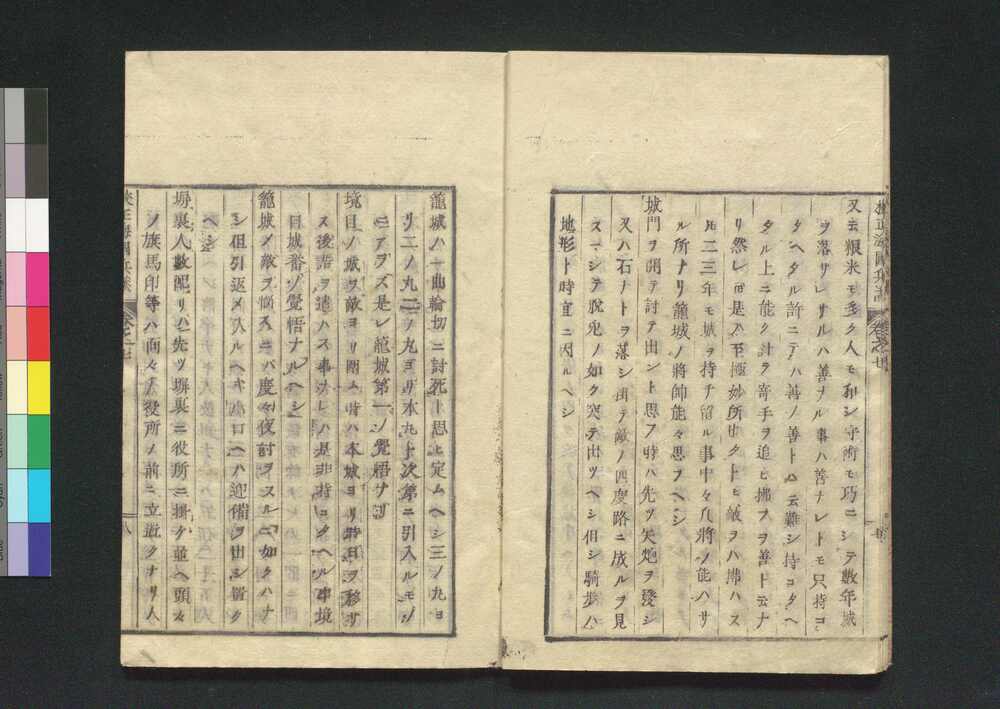 又云粮米モ多ク人モ和シ守術モ巧ニシテ數年城
ヲ落サレサルハ善ナル事ハ善ナレトモ只持コ
タヘタル許ニテハ善ノ善トハ云難シ持コタヘ
タル上ニ能ク計ヲ寄手ヲ追ヒ拂フヲ善ト云ナ
リ然レ𪜈是ハ至極妙所也タトヒ敵ヲハ拂ハス
𪜈二三年モ城ヲ持チ留ル事中々凡將ノ能ハサ
ル所ナリ籠城ノ將帥能々思フヘシ
城門ヲ開テ討テ出ント思フ時ハ先ツ矢炮ヲ發シ
又ハ石ナトヲ落シ掛テ敵ノ四度路ニ成ルヲ見
スマシテ脱兎ノ如ク突テ出ツヘシ但シ騎歩ハ
地形ト時宜ニ因ルヘシ
籠城ハ一曲輪切ニ討死ト思ヒ定ムヘシ三ノ丸ヨ
リ二ノ丸二ノ丸ヨリ本丸ト次第ニ引入ルモノ
ニアラズ是レ籠城第一ノ覺悟ナリ
境目ノ城ヲ敵ヨリ圍ム時ハ本城ヨリ時日ヲ移サ
ス後詰ヲ遣ハス事
目城番ノ覺悟ナルヘシ
籠城ノ敵ヲ惱スニハ度々夜討ヲスルニ如クハナ
シ但引返メ入ルヘキ虎口ヘハ迎備ヲ出シ置ク
ヘシ
塀裏人數配リハ先ツ塀裏ニ役所ニ掛ケ並ヘ頭々
ノ旗馬印等ハ面々ノ役所ノ前ニ立置クナリ人